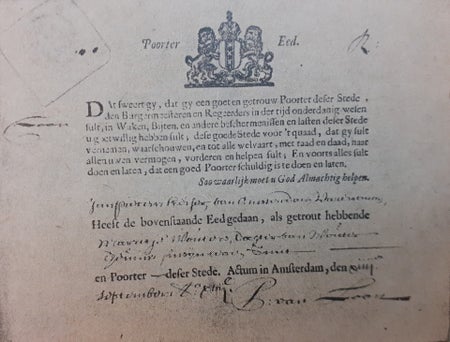 Poorter Eed.
DAt sweert gy, dat gy een goet en getrouw Poorter deser Stede,
den Burgermeesteren en Regeerders in der tijd onderdanig wesen
sult, in Waken, Bijten, en andere beschermenissen en lasten deser Stede
u gewillig hebben sult; dese goede Stede voor 't quaad, dat gy sult
vernemen, waarschouwen, en tot alle welvaart, met raad en daad, naar
allen u wen vermogen, vorderen en helpen sult; En voorts alles sult
doen en laten, dat een goed Poorter schuldig is te doen en laten.
Soo waarlijk moet u God Almachtig helpen.
van Amsterdam
Heeft de bovenstaande Eed gedaan, als getrout hebbende
Wouters, Dogter van Wouter
en Poorter deser Stede. Actum in Amsterdam, den xiiij
September
van